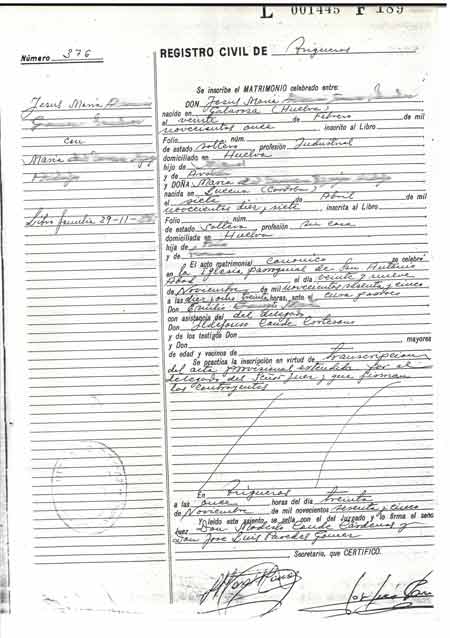 L 001445 F 189
Número 376
REGISTRO CIVIL DE Trigueros
Jesus Maria
con
Maria
Libro familia 29-11-
Se inscribe el MATRIMONIO celebrado entre:
DON Jesus Maria
nacido en Galaroza (Huelva)
el veinte de Febrero de mil
novecientos once inscrito al Libro
Folio núm.
de estado soltero profesión Industrial
domiciliado en Huelva
hijo de
y de
y DOÑA Maria
nacida en Lucena (Cordoba)
el siete de Abril de mil
novecientos diez y siete inscrita al Libro
Folio núm.
de estado soltera profesión su casa
domiciliada en Huelva
hija de
y de
El acto matrimonial canonico se celebró
en la Iglesia parroquial de San Antonio
Abad el día veinte y nueve
de Noviembre de mil novecientos sesenta y cinco
a las diez y ocho treinta horas, ante el cura parroco
Don Emilio
con asistencia del del delegado
Don Ildefonso Conde
y de los testigos Don
y Don mayores
de edad y vecinos de
Se practica la inscripción en virtud de transcripcion
del acta provisional extendida por el
delegado del Señor Juez y que firman
los contrayentes
En Trigueros
a las once horas del día treinta
de Noviembre de mil novecientos sesenta y cinco
Y leído este asiento, se sella con el del Juzgado y lo firma el señor
Juez Don Modesto Conde Cardenas y
Don Jose Luis Paredes Gomez
Secretario, que CERTIFICO.